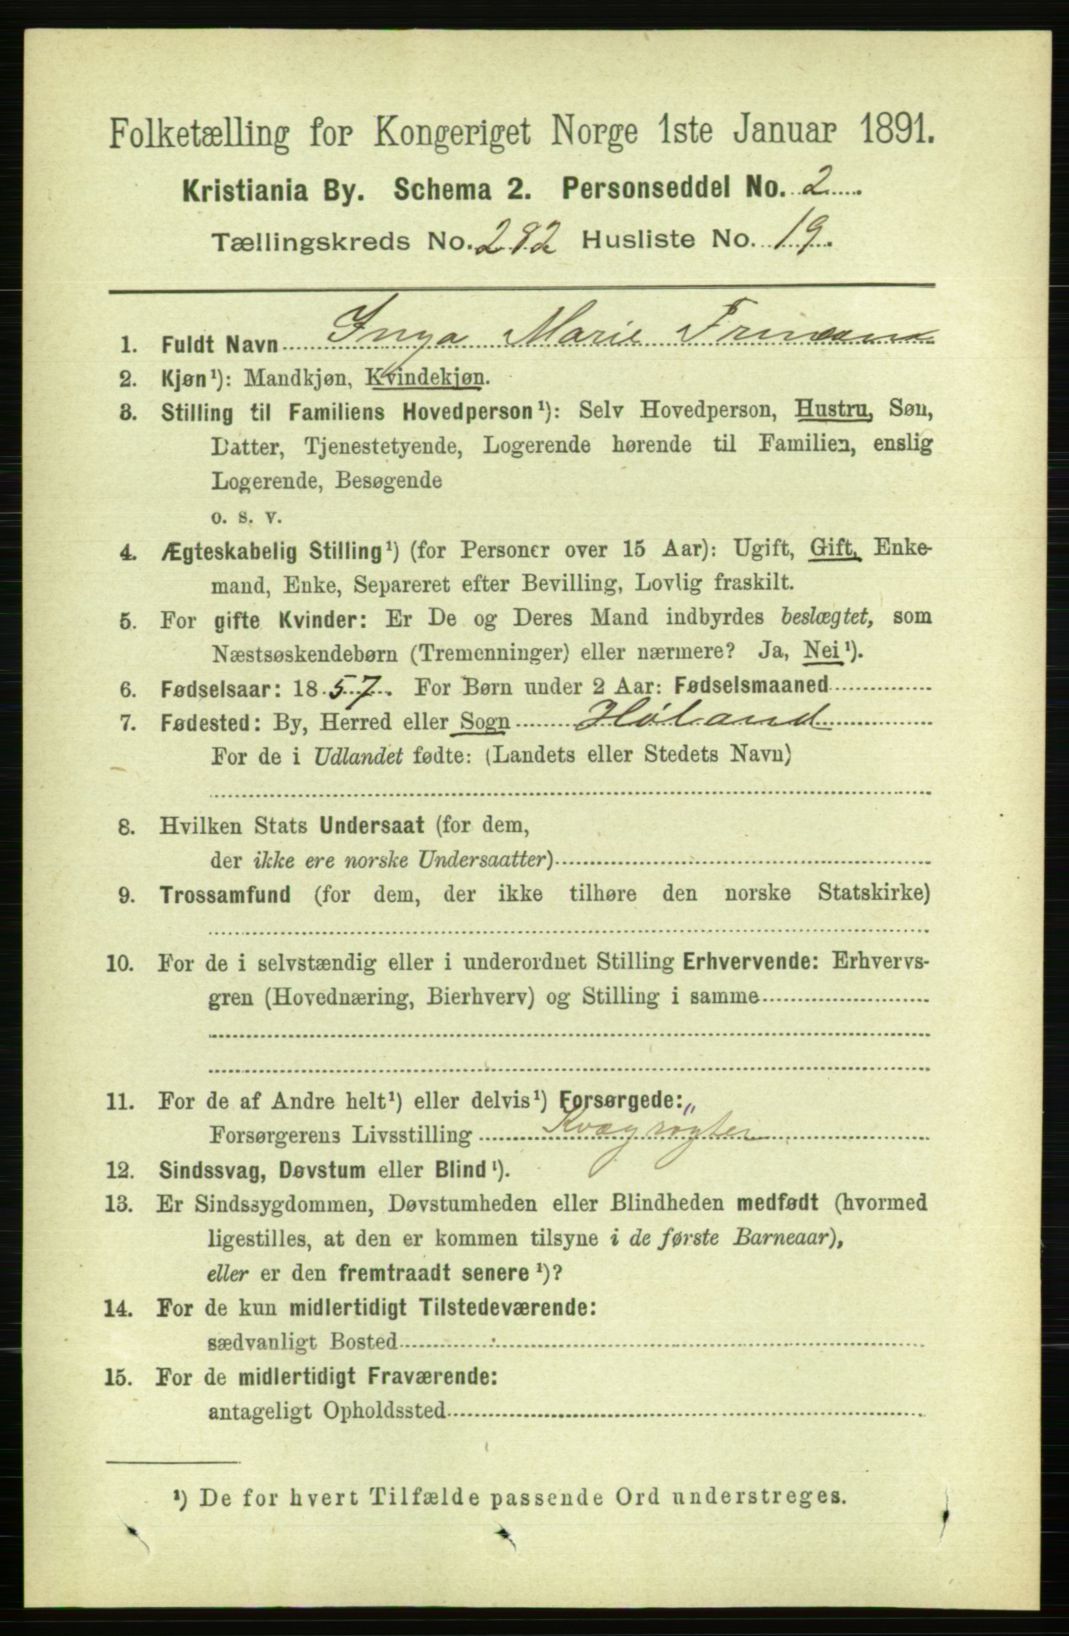 Folketælling for Kongeriget Norge 1ste Januar 1891.
Kristiania By. Schema 2. Personseddel No. 2
Tællingskreds No. 282 Husliste No. 19.
1. Fuldt Navn Inga Marie
2. Kjøn¹): Mandkjøn, Kvindekjøn.
3. Stilling til Familiens Hovedperson¹): Selv Hovedperson, Hustru, Søn,
Datter, Tjenestetyende, Logerende hørende til Familien, enslig
Logerende, Besøgende
o. s. v.
4. Ægteskabelig Stilling¹) (for Personer over 15 Aar): Ugift, Gift, Enke-
mand, Enke, Separeret efter Bevilling, Lovlig fraskilt.
5. For gifte Kvinder: Er De og Deres Mand indbyrdes beslægtet, som
Næstsøskendebørn (Tremenninger) eller nærmere? Ja, Nei¹).
6. Fødselsaar: 1857. For Børn under 2 Aar: Fødselsmaaned
7. Fødested: By, Herred eller Sogn Høland
For de i Udlandet fødte: (Landets eller Stedets Navn)
8. Hvilken Stats Undersaat (for dem,
der ikke ere norske Undersaatter)
9. Trossamfund (for dem, der ikke tilhøre den norske Statskirke)
10. For de i selvstændig eller i underordnet Stilling Erhvervende: Erhvervs-
gren (Hovednæring, Bierhverv) og Stilling i samme
11. For de af Andre helt¹) eller delvis¹) Forsørgede: "
Forsørgerens Livsstilling Kvægrøgter
12. Sindssvag, Døvstum eller Blind¹).
13. Er Sindssygdommen, Døvstumheden eller Blindheden medfødt (hvormed
ligestilles, at den er kommen tilsyne i de første Barneaar),
eller er den fremtraadt senere¹)?
14. For de kun midlertidigt Tilstedeværende:
sædvanligt Bosted
15. For de midlertidigt Fraværende:
antageligt Opholdssted
¹) De for hvert Tilfælde passende Ord understreges.